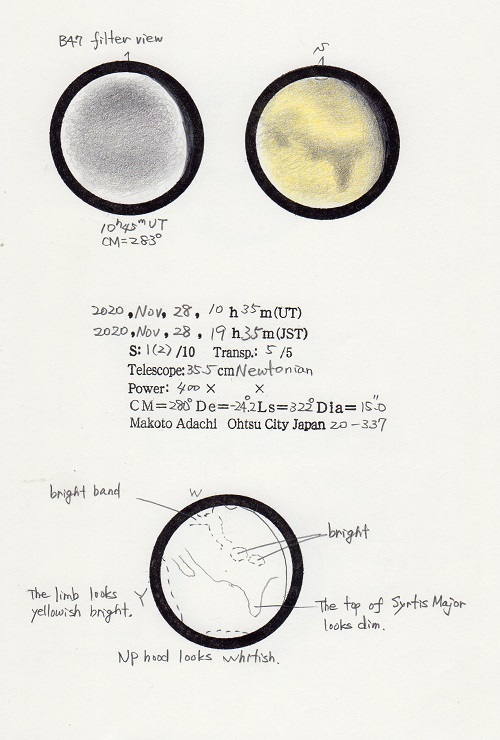 B47 filter view
S
10h45m UT
CM=283°
2020, Nov, 28, 10 h 35 m (UT)
2020, Nov, 28, 19 h 35 m (JST)
S: 1(2) /10 Transp.: 5 /5
Telescope: 35.5 cm Newtonian
Power: 400 × ×
CM=280° De=-24.2° Ls=322° Dia=15.0"
Makoto Adachi Ohtsu City Japan 20-337
bright band
W
bright
The limb looks
yellowish bright.
Y
The top of Syrtis Major
looks dim.
NP hood looks whitish.